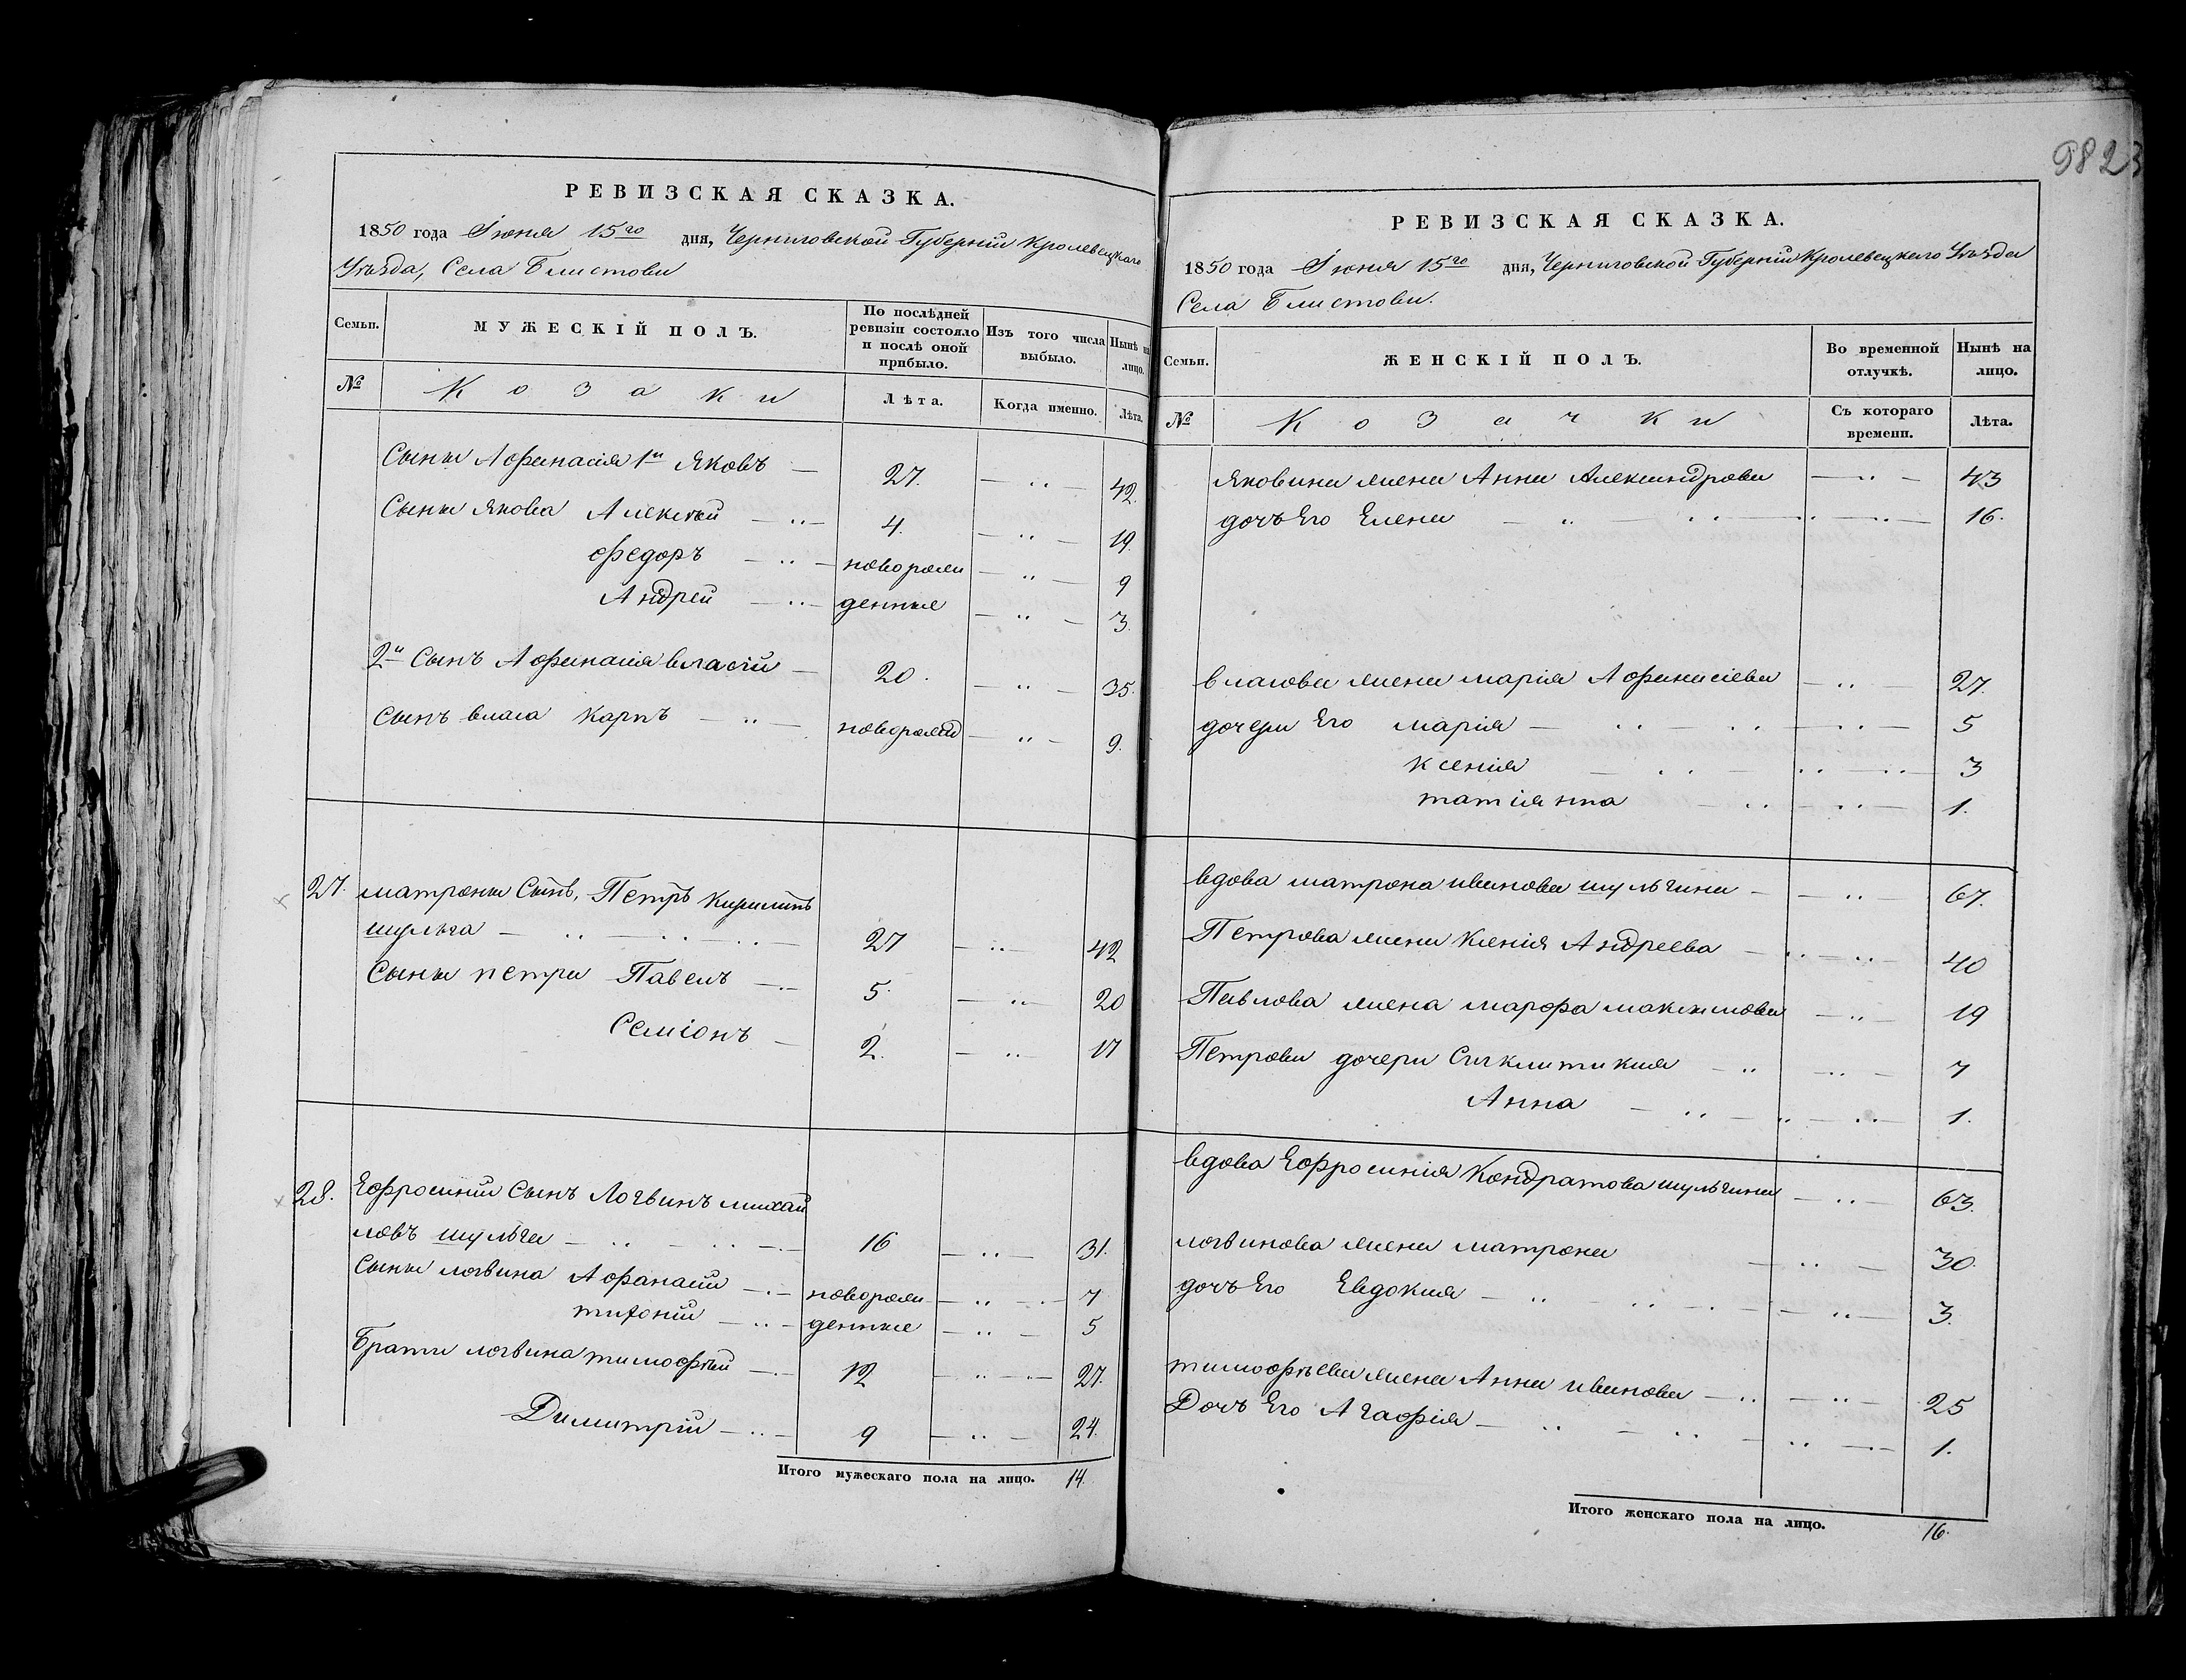 РЕВИЗСКАЯ СКАЗКА.
1850 года Іюня 15го дня, Черниговской Губерніи Кролевецкаго
Уѣзда, Села Блистови
Семьи. МУЖЕСКІЙ ПОЛЪ. По послѣдней ревизіи состояло и послѣ оной прибыло. Изъ того числа выбыло. Нынѣ на лицо.
№ Козаки Лѣта. Когда именно. Лѣта.
Сыны Афанасія 1й Яковъ 27. 42.
Сыны Якова Алексѣй 4. 19.
Федоръ новорож 9
Андрей денные 3.
2й Сынъ Афанасія Власій 20. 35.
Сынъ Власа Карпъ новорожд 9.
27. Матроны Сынъ, Петръ Кириловъ
Шульга 27 42
Сыны Петра Павелъ 5. 20
Семіонъ 2. 17
28. Ефросиніи Сынъ Логвинъ Михай
ловъ Шульга 16 31.
Сыны Логвина Афанасій новорож 7
денные 5
Браты Логвина Тимофѣй 12 27.
Димитрій 9 24.
Итого мужескаго пола на лицо. 14.
9823
РЕВИЗСКАЯ СКАЗКА.
1850 года Іюня 15го дня, Черниговской Губерніи Кролевецкаго Уѣзда
Села Блистови.
Семьи. ЖЕНСКІЙ ПОЛЪ. Во временной отлучкѣ. Нынѣ на лицо.
№ Козачки Съ котораго времени. Лѣта.
Яковина жена Анна Александрова 43
дочъ Его Елена 16.
Власова жена Марія Афанасіева 27.
дочери Его Марія 5
Ксенія 3
Татіянна 1.
вдова Матрона Иванова Шульгина 67.
Петрова жена Ксенія Андреева 40
Павлова жена Марфа Максимова 19
Петрови дочери Сигклитикия 7
Анна 1.
вдова Ефросинія Кондратова Шульгина 63.
Логвинова жена Матрона 30.
дочъ Его Евдокия 3.
Тимофѣева жена Анна Иванова 25
Дочъ Его Агафія 1.
Итого женскаго пола на лицо. 16.